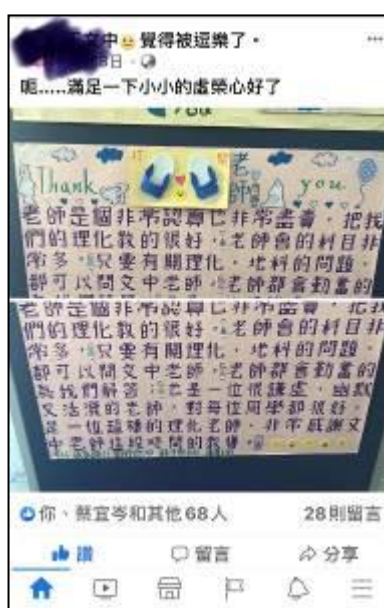 文中😐 覺得被逗樂了。
呃.....滿足一下小小的虛榮心好了
you
老
Thank 師 you
老師是個非常認真也非常盡責，把我
們的理化教的很好。老師會的科目非
常多，只要有關理化、地科的問題，
都可以問文中老師，老師都會勤奮的
老師是個非常認真也非常盡責，把我
們的理化教的很好。老師會的科目非
常多，只要有關理化、地科的問題，
都可以問文中老師，老師都會勤奮的
為我們解答，老是一位很謙虛、幽默
又活潑的老師，對每位同學都很好，
是一位這種的理化老師，非常感謝文
中老師這段時間的教導。
你、蔡宜岑和其他 68 人 28則留言
讚 留言 分享